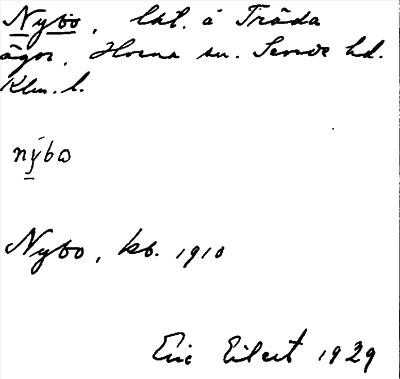 Nybo, lht. å Tråda
ägor, Horns sn. Sevede hd.
Klm. l.
nýbω
Nybo, kb. 1910
Eric Eilert 1929